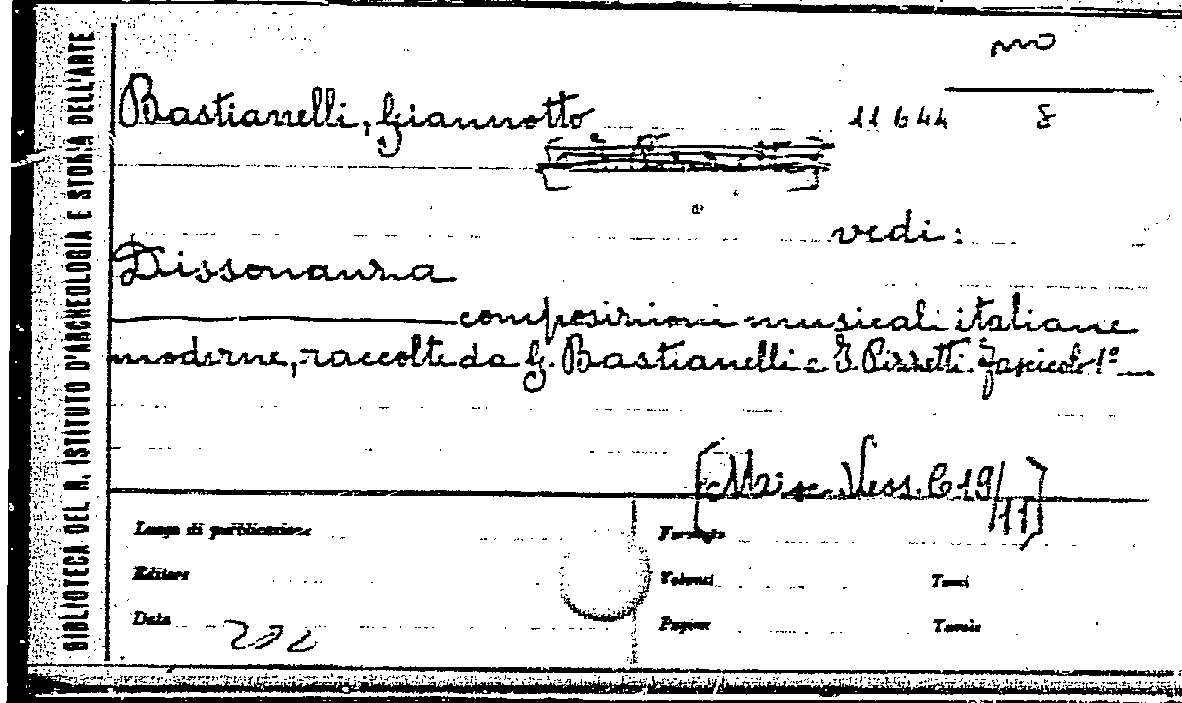 BIBLIOTECA DEL R. ISTITUTO D'ARCHEOLOGIA E STORIA DELL'ARTE
Bastianelli, Giannotto 11644 8
vedi:
Dissonanza
composizioni musicali italiane
moderne, raccolte da G. Bastianelli e I. Pizzetti. Fascicolo 1º
[Misc. Vess. C 19/11]
Luogo di pubblicazione
Formato
Editore
Volumi
Tomi
Data
Pagine
Tavole